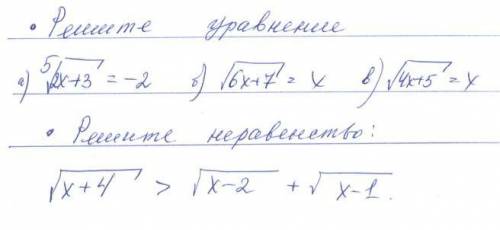 • Решите уравнение
а) ⁵√2x+3 = -2 б) √6x+7 = x в) √4x+5 = x
• Решите неравенство:
√x+4 > √x-2 + √x-1.